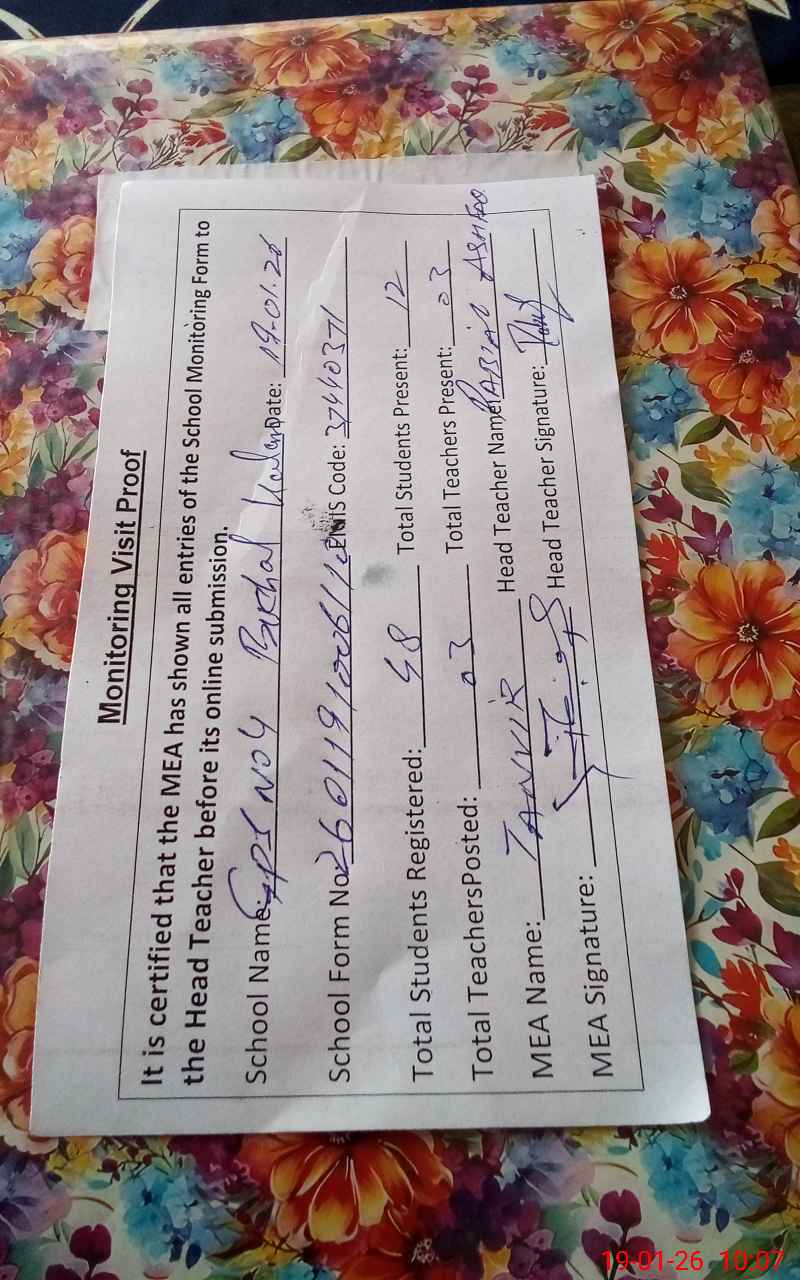 Monitoring Visit Proof
It is certified that the MEA has shown all entries of the School Monitoring Form to
the Head Teacher before its online submission.
School Name: GPS NO4 Bakhal Kalan Date: 19-01-26
School Form No: EMIS Code: 37440371
Total Students Registered: 48 Total Students Present: 12
Total TeachersPosted: 03 Total Teachers Present: 03
MEA Name: TANVIR Head Teacher Name: RABIA ASHFAQ
MEA Signature: Head Teacher Signature:
19-01-26 10:07